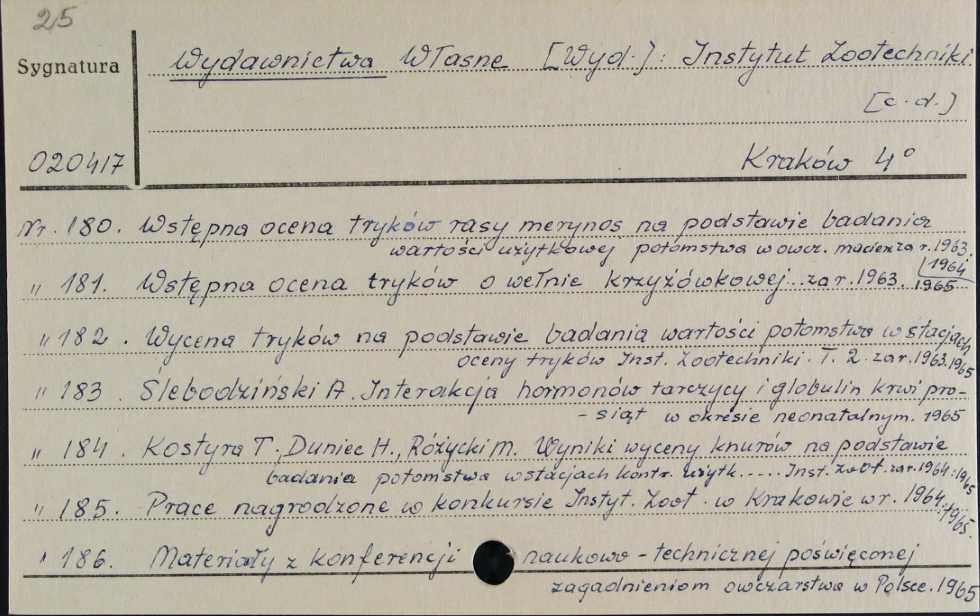 25
Sygnatura
Wydawnictwa Własne [Wyd.]: Instytut Zootechniki.
[c.d.]
020417
Kraków 4°
Nr. 180. Wstępna ocena tryków rasy merynos na podstawie badania
wartości użytkowej potomstwa w owcz. macierz. za r. 1963.
1964
" 181. Wstępna ocena tryków o wełnie krzyżówkowej...za r. 1963. 1965
" 182. Wycena tryków na podstawie badania wartości potomstwa w stacjach
oceny tryków Inst. Zootechniki. T. 2. za r. 1963. 1965
" 183. Ślebodziński A. Interakcja hormonów tarczycy i globulin krwi pro-
- siąt w okresie neonatalnym. 1965
" 184. Kostyra T., Duniec H., Różycki M. Wyniki wyceny knurów na podstawie
badania potomstwa w stacjach kontr. użytk..... Inst. Zoot. za r. 1964. 1965
" 185. Prace nagrodzone w konkursie Instyt. Zoot. w Krakowie w r. 1964. 1965.
" 186. Materiały z konferencji naukowo-technicznej poświęconej
zagadnieniom owczarstwa w Polsce. 1965